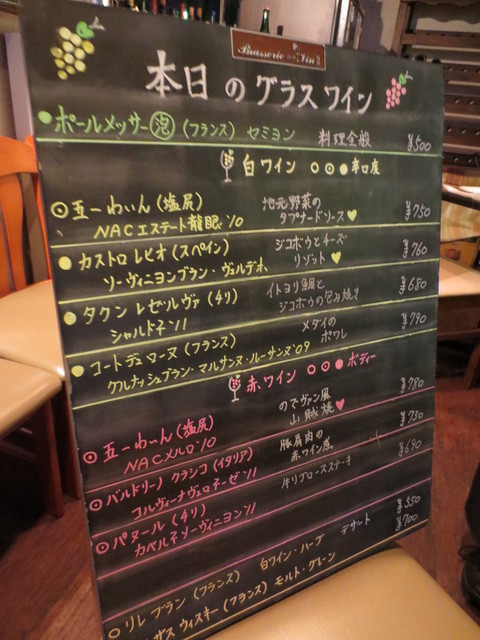 Brasserie のでVin
本日のグラスワイン
ポールメッサー 泡 (フランス) セミヨン 料理全般 ¥500
白ワイン ○ ⊙ ● 辛口度
⊙ 五一わいん (塩尻) 地元野菜の ¥750
NACエステート龍眼 '10 タプナードソース
● カストロレビオ (スペイン) ジコボウとチーズ ¥760
ソーヴィニヨンブラン・ヴェルデホ リゾット
● タクン レゼルヴァ (チリ) イトヨリ鯛と ¥680
シャルドネ '11 ジコボウの包み焼き
● コートデュローヌ (フランス) メダイの ¥790
グルナッシュブラン・マルサンヌ・ルーサンヌ '09 ポワレ
赤ワイン ○ ⊙ ● ボディー
⊙ 五一わーん (塩尻) のでヴァン風 ¥780
NACメルロ '10 山賊焼
⊙ バルドリーノ クラシコ (イタリア) 豚肩肉の ¥730
コルヴィーナヴェロネーゼ '11 赤ワイン煮
⊙ パヌール (チリ) 牛リブロースステーキ ¥690
カベルネソーヴィニヨン '11
○ リレ ブラン (フランス) 白ワイン・ハーブ デザート ¥550
ザス ウィスキー (フランス) モルト・グレーン ¥700